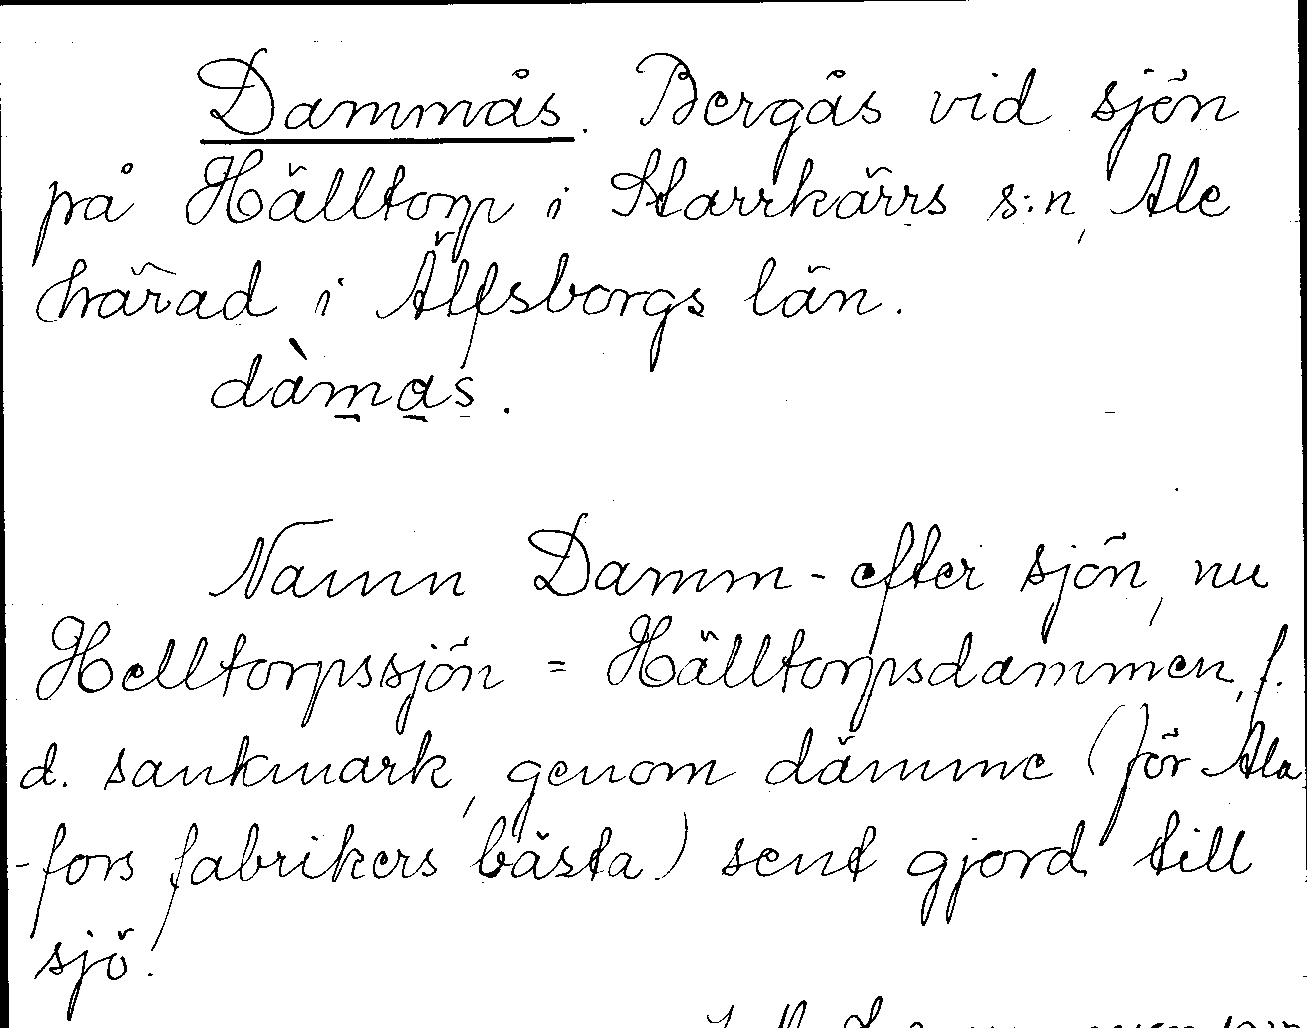 Dammås. Bergås vid sjön
på Hälltorp i Starrkärrs s:n, Ale
härad i Älfsborgs län.
dàmas.
Namn Damm- efter sjön, nu
Helltorpssjön = Hälltorpsdammen, f.
d. sankmark, genom dämme (för Ala
-fors fabrikers bästa) sent gjord till
sjö.